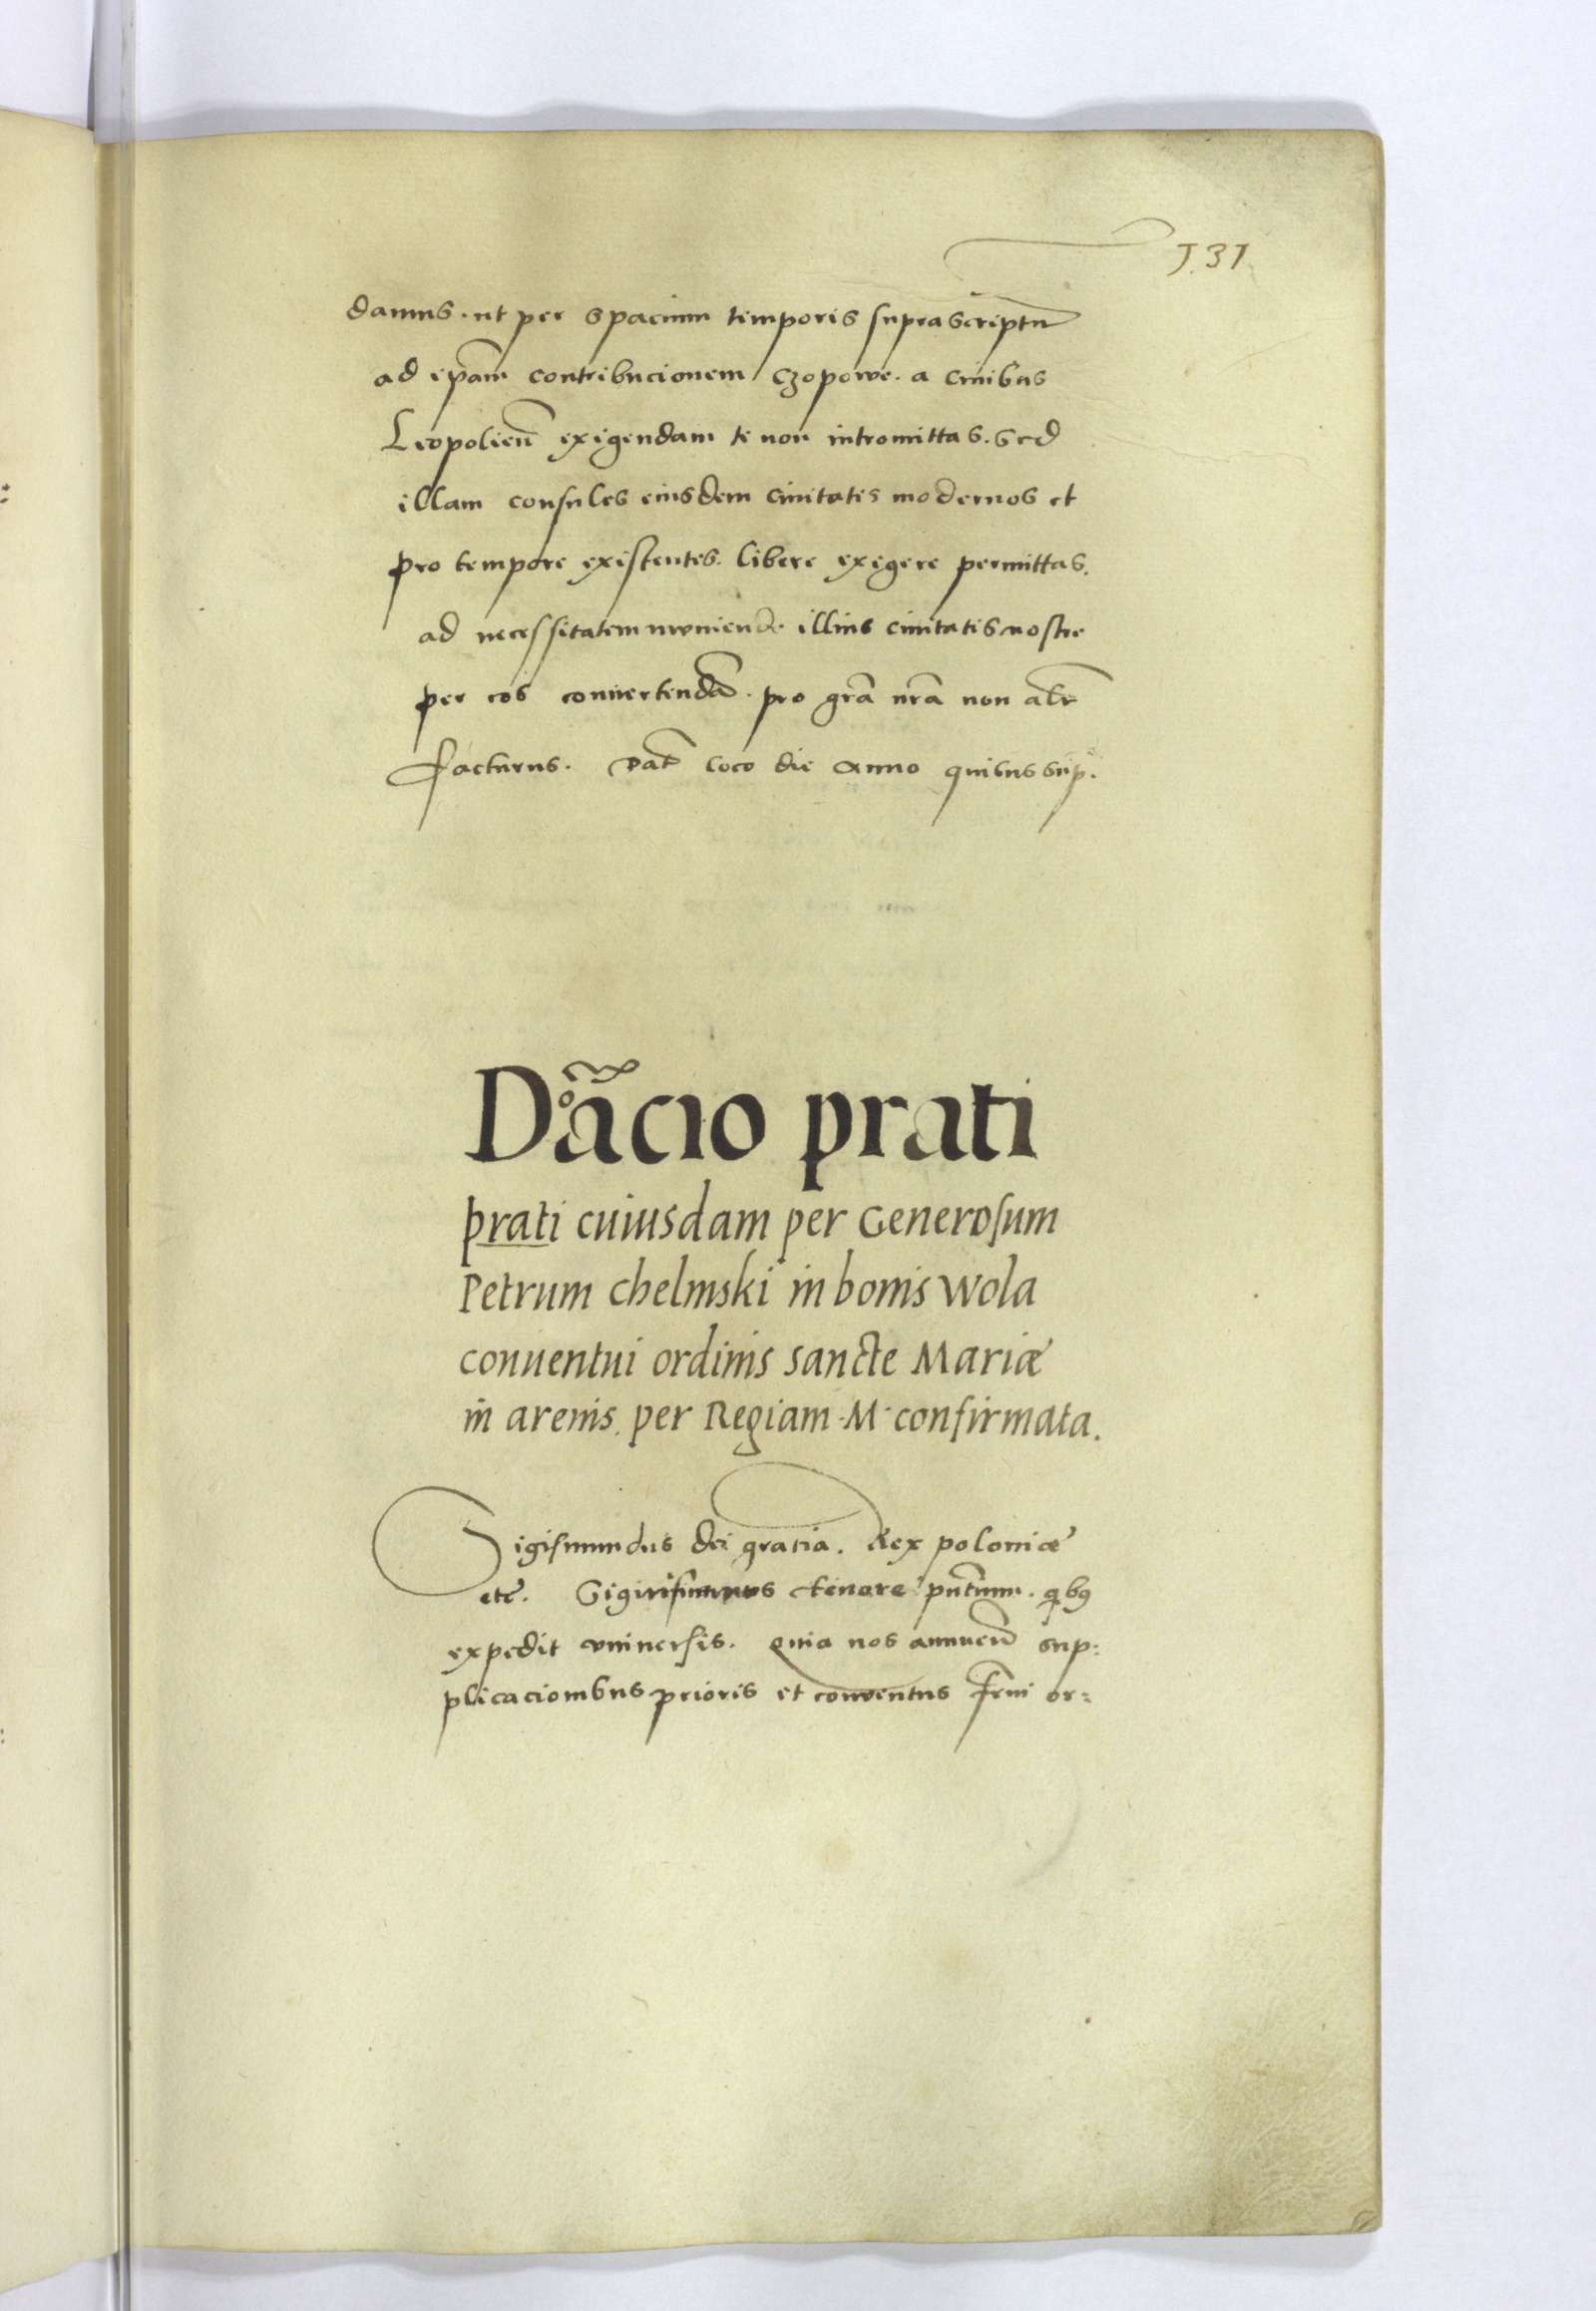 131
damus. ut per spacium temporis suprascriptū
ad ip̄am contribucionem czopowe. a civibus
Leopolień exigendam te non intromittas. sed
illam consules eiusdem civitatis modernos et
pro tempore existentes. libere exigere permittas.
ad necessitatem muniende illius civitatis nostre
per eos convertendā. pro grā nrā non alr̄
facturus. Dat̄ loco die anno quibus sup.
Dºācio prati
prati cuiusdam per Generosum
Petrum chelmski in bonis wola
conuentui ordinis sancte Mariæ
in arenis. per Regiam M. confirmata.
Sigismundus dei gratia. Rex poloniæ
etc̄. tenore pn̄tium. qͥbꝯ
expedit vniuersis. Quia nos annuen̄ sup:
plicacionibus prioris et conventus frm̄ or: